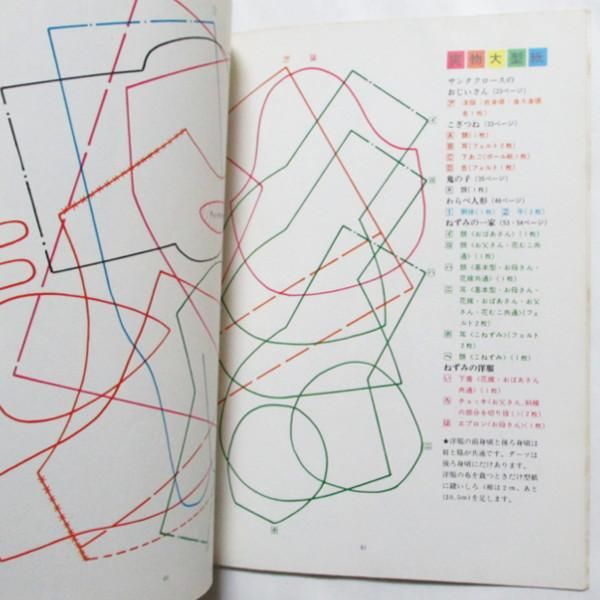 実物大型紙
サンタクロースの
おじいさん（23ページ）
洋服（前身頃・後ろ身頃
各1枚）
こぎつね（33ページ）
A 頭（1枚）
B 耳（フェルト2枚）
C 下あご（ボール紙1枚）
D 舌（フェルト1枚）
鬼の子（35ページ）
頭（1枚）
わらべ人形（46ページ）
1 胴体（1枚） 2 手（2枚）
ねずみの一家（53・54ページ）
イ 頭（おばあさん）（1枚）
ロ 頭（お父さん・花むこ共
通）（1枚）
ハ 頭（基本型・お母さん・
花嫁共通）（1枚）
ニ 耳（基本型・お母さん・
花嫁・おばあさん・お父
さん・花むこ共通）（フェ
ルト2枚）
ホ 耳（こねずみ）（フェルト
2枚）
ヘ 頭（こねずみ）（1枚）
ねずみの洋服
い 下着（花嫁・おばあさん
共通）（1枚）
ろ チョッキ（お父さん、斜線
の部分を切り抜く）（2枚）
は エプロン（お母さん）（1枚）
★洋服の前身頃と後ろ身頃は
衿と脇が共通です。ダーツは
後ろ身頃にだけあります。
洋服の布を裁つときだけ型紙
に縫いしろ（裾は2cm、あと
は0.5cm）を足します。
61